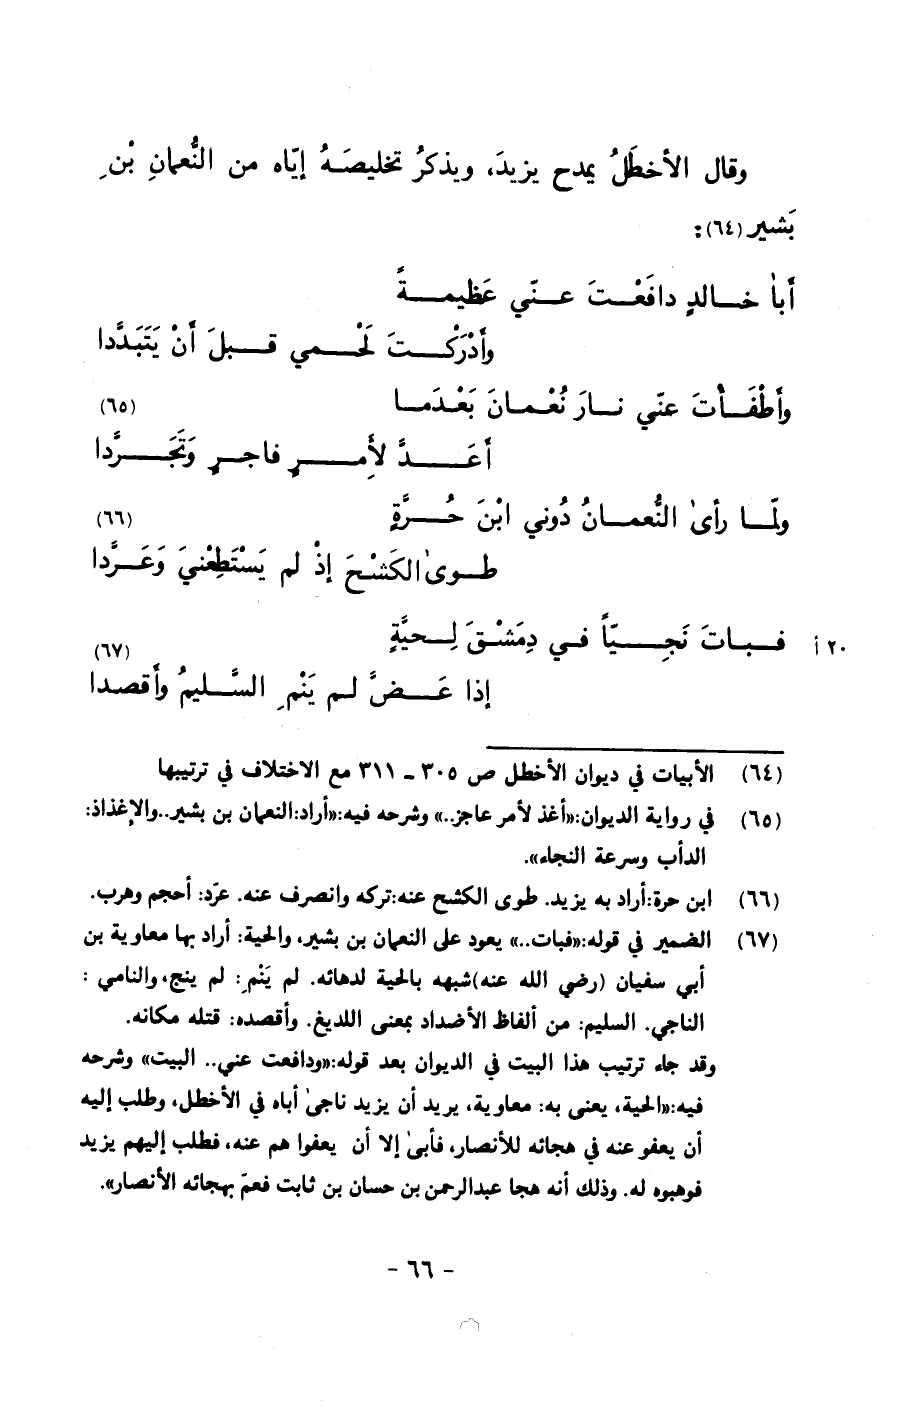 وقال الأخطَلُ يمدح يزيدَ، ويذكرُ تخليصَهُ إيّاه من النُّعمانِ بْنِ
بَشير (٦٤):
أَبا خالدٍ دافَعْتَ عنّي عَظيمةً
وأَدْرَكْتَ لَحْمي قبلَ أَنْ يَتَبَدَّدا
وأَطْفَأْتَ عنّي نارَ نُعْمانَ بَعْدَما (٦٥)
أَعَدَّ لأَمرٍ فاجرٍ وَتَجَرَّدا
ولمّا رأىٰ النُّعمانُ دُوني ابْنَ حُرَّةٍ (٦٦)
طوىٰ الكَشْحَ إذْ لم يَسْتَطِعْنيَ وَعَرَّدا
٢٠ أ فباتَ نَجِيّاً في دِمَشْقَ لِحيَّةٍ (٦٧)
إذا عَضَّ لم يَنْمِ السَّليمُ وأَقصدا
(٦٤) الأبيات في ديوان الأخطل ص ٣٠٥ ـ ٣١١ مع الاختلاف في ترتيبها
(٦٥) في رواية الديوان:«أغذ لأمر عاجز..» وشرحه فيه:«أراد:النعمان بن بشير..والإغذاذ:
الدأب وسرعة النجاء».
(٦٦) ابن حرة:أراد به يزيد. طوى الكشح عنه:تركه وانصرف عنه. عرّد: أحجم وهرب.
(٦٧) الضمير في قوله:«فبات..» يعود على النعمان بن بشير، والحية: أراد بها معاوية بن
أبي سفيان (رضي الله عنه)شبهه بالحية لدهائه. لم يَنْمِ: لم ينج، والنامي :
الناجي. السليم: من ألفاظ الأضداد بمعنى اللديغ. وأقصده: قتله مكانه.
وقد جاء ترتيب هذا البيت في الديوان بعد قوله:«ودافعت عني.. البيت» وشرحه
فيه:«الحية، يعنى به: معاوية، يريد أن يزيد ناجىٰ أباه في الأخطل، وطلب إليه
أن يعفو عنه في هجائه للأنصار، فأبىٰ إلا أن يعفوا هم عنه، فطلب إليهم يزيد
فوهبوه له. وذلك أنه هجا عبدالرحمن بن حسان بن ثابت فعمّ بهجائه الأنصار».
- ٦٦ -